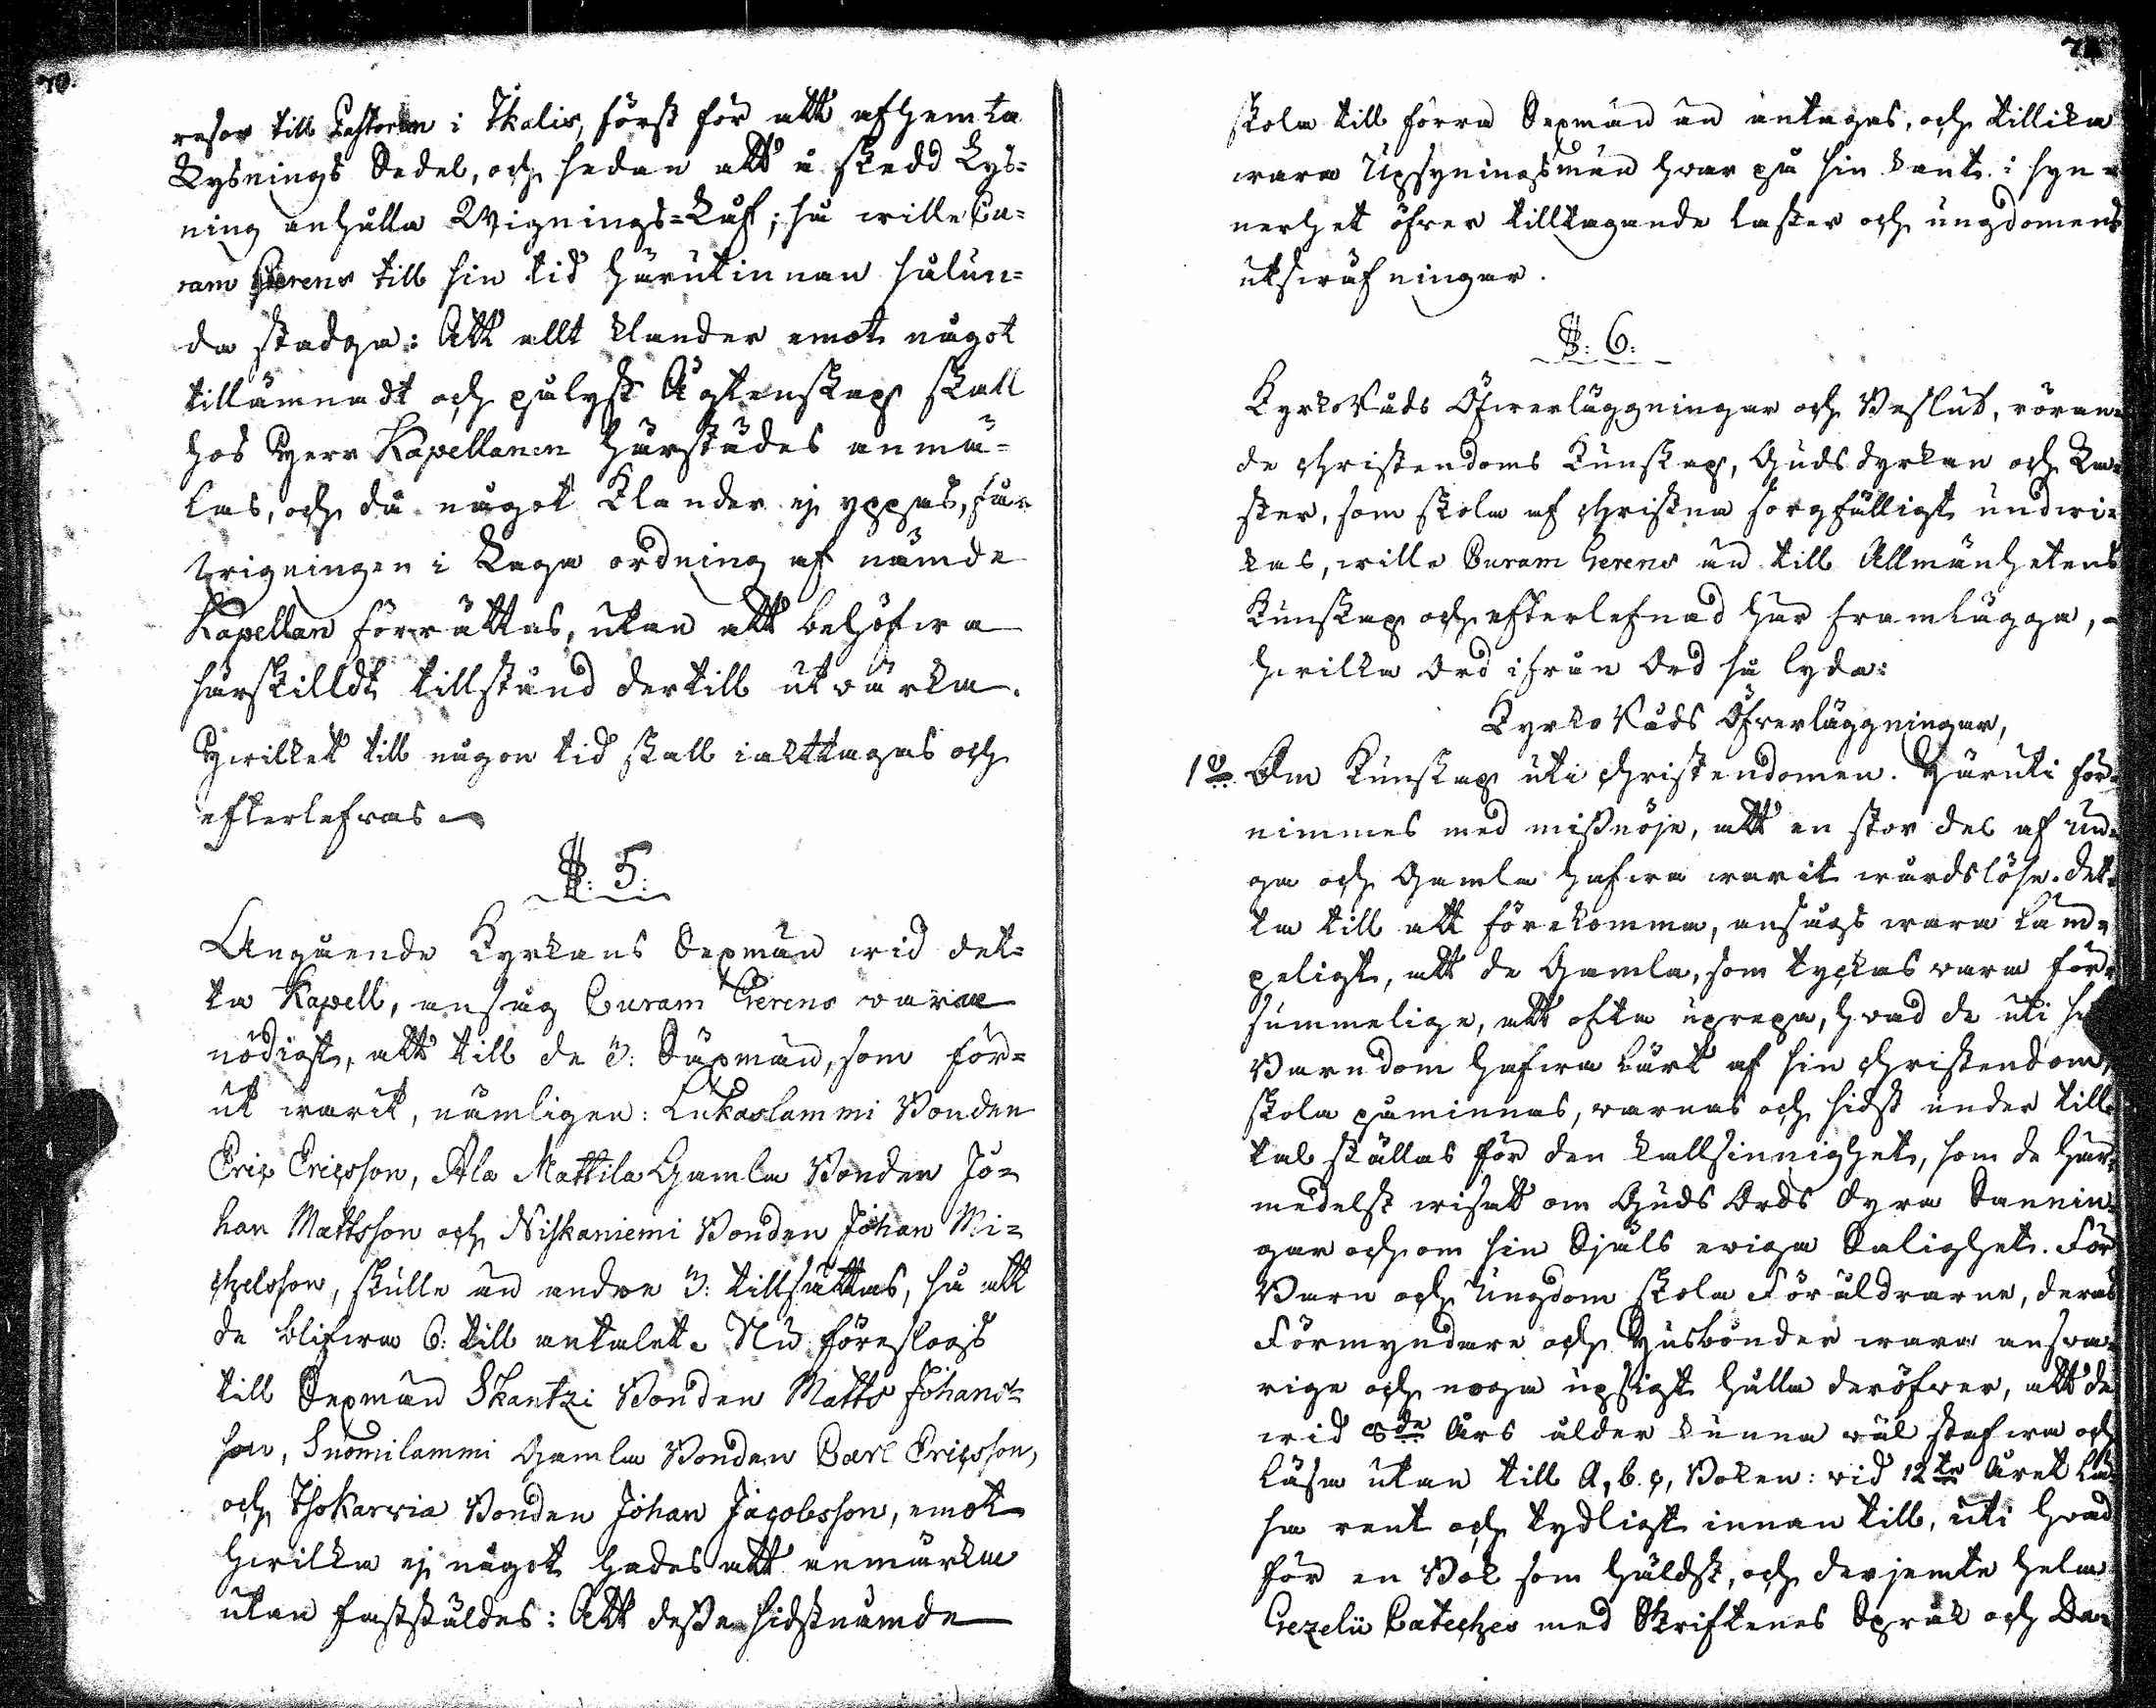 70.
resor till Pastoren i Ikalis, först för att afhemta
Lysnings Sedel, och sedan att å skedd Lys=
ning anhålla Wignings=Luft; så wille Cu=
ram Gerens till sin tid härutinnan sålun=
da stadga: Att allt klander emot något
tillämnadt och pålyst Ägtenskap skall
hos Herr Kapellanen härstädes anmä=
las, och då något Klander ej yppas, får
wigningen i Laga ordning af nämde
Kapellan förrättas, utan att behöfwa
särskilldt tillstånd dertill utvärka.
Hwilket till någon tid skall iakttagas och
efterlefwas.
§. 5.
Angående Kyrkans Sexmän wid det=
ta Kapell, ansåg Curam Gerens vara
nödigt, att till de 3: Säxmän, som för=
ut warit, nämligen: Lukaslammi Bonden
Eric Ericsson, Ala Mattila Gamla Bonden Jo=
han Mattsson och Niskaniemi Bonden Johan Mi=
chelsson, skulle än andre 3: tillsättas, så att
de blifwa 6: till antalet. Nu föreslogs
till Sexmän Skantzi Bonden Matts Johans=
son, Suomilammi Gamla Bonden Carl Ericsson,
och Isokarvia Bonden Johan Jacobsson, emot
hwilka ej något hades att anmärka
utan fastställdes: Att desse sidstnämde
skola till förra Sexmän än antagas, och tillika
wara Upsyningsmän hwar på sin kant i syn=
nerhet öfwer tilltagande laster och ungdomens
utswäfningar.
§. 6.
KyrkoRåds Öfwerläggningar och Beslut, röran=
de Christendoms Kunskap, Guds dyrkan och La=
ster, som skola af Christna sorgfälligt undwi=
kas, wille Curam Gerens än till Allmänhetens
Kunskap och efterlefnad här framlägga,
hwilka Ord ifrån Ord så lyda:
KyrkoRåds Öfwerläggningar,
1o. Om Kunskap uti Christendomen. Häruti för=
nimmes med missnöje, att en stor del af un=
ga och Gamla hafwa warit wårdslöse. Det=
ta till att förekomma, ansågs wara läm=
peligt, att de Gamla, som tyckas wara för=
summelige, att ofta uprepa, hwad de uti
Barndom hafwa lärt af sin Christendom,
skola påminnas, warnas och sidst under till=
tal ställas för den kallsinnighet, som de här=
medelst wisat om Guds Ords dyra Sannin=
gar och om sin Själs ewiga Salighet. För
Barn och Ungdom skola Föräldrarne, deras
Förmyndare och Husbönder wara answa=
rige och noga upsigt hålla deröfwer, att de
wid 8de Års ålder kunna wäl stafwa och
läsa utan till A, b. c, Boken: vid 12te Året lä=
sa rent och tydligt innan till, uti hwad
för en Bok som häldst, och derjemte hela
Gezelii Cateches med Skriftenes Språk och Da=